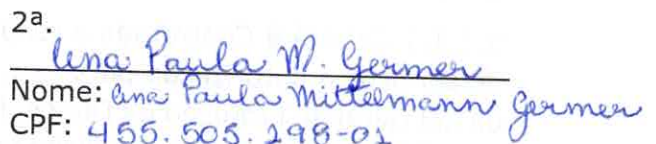 2ª.
Ana Paula M. Germer
Nome: Ana Paula Mittelmann Germer
CPF: 455.505.298-01